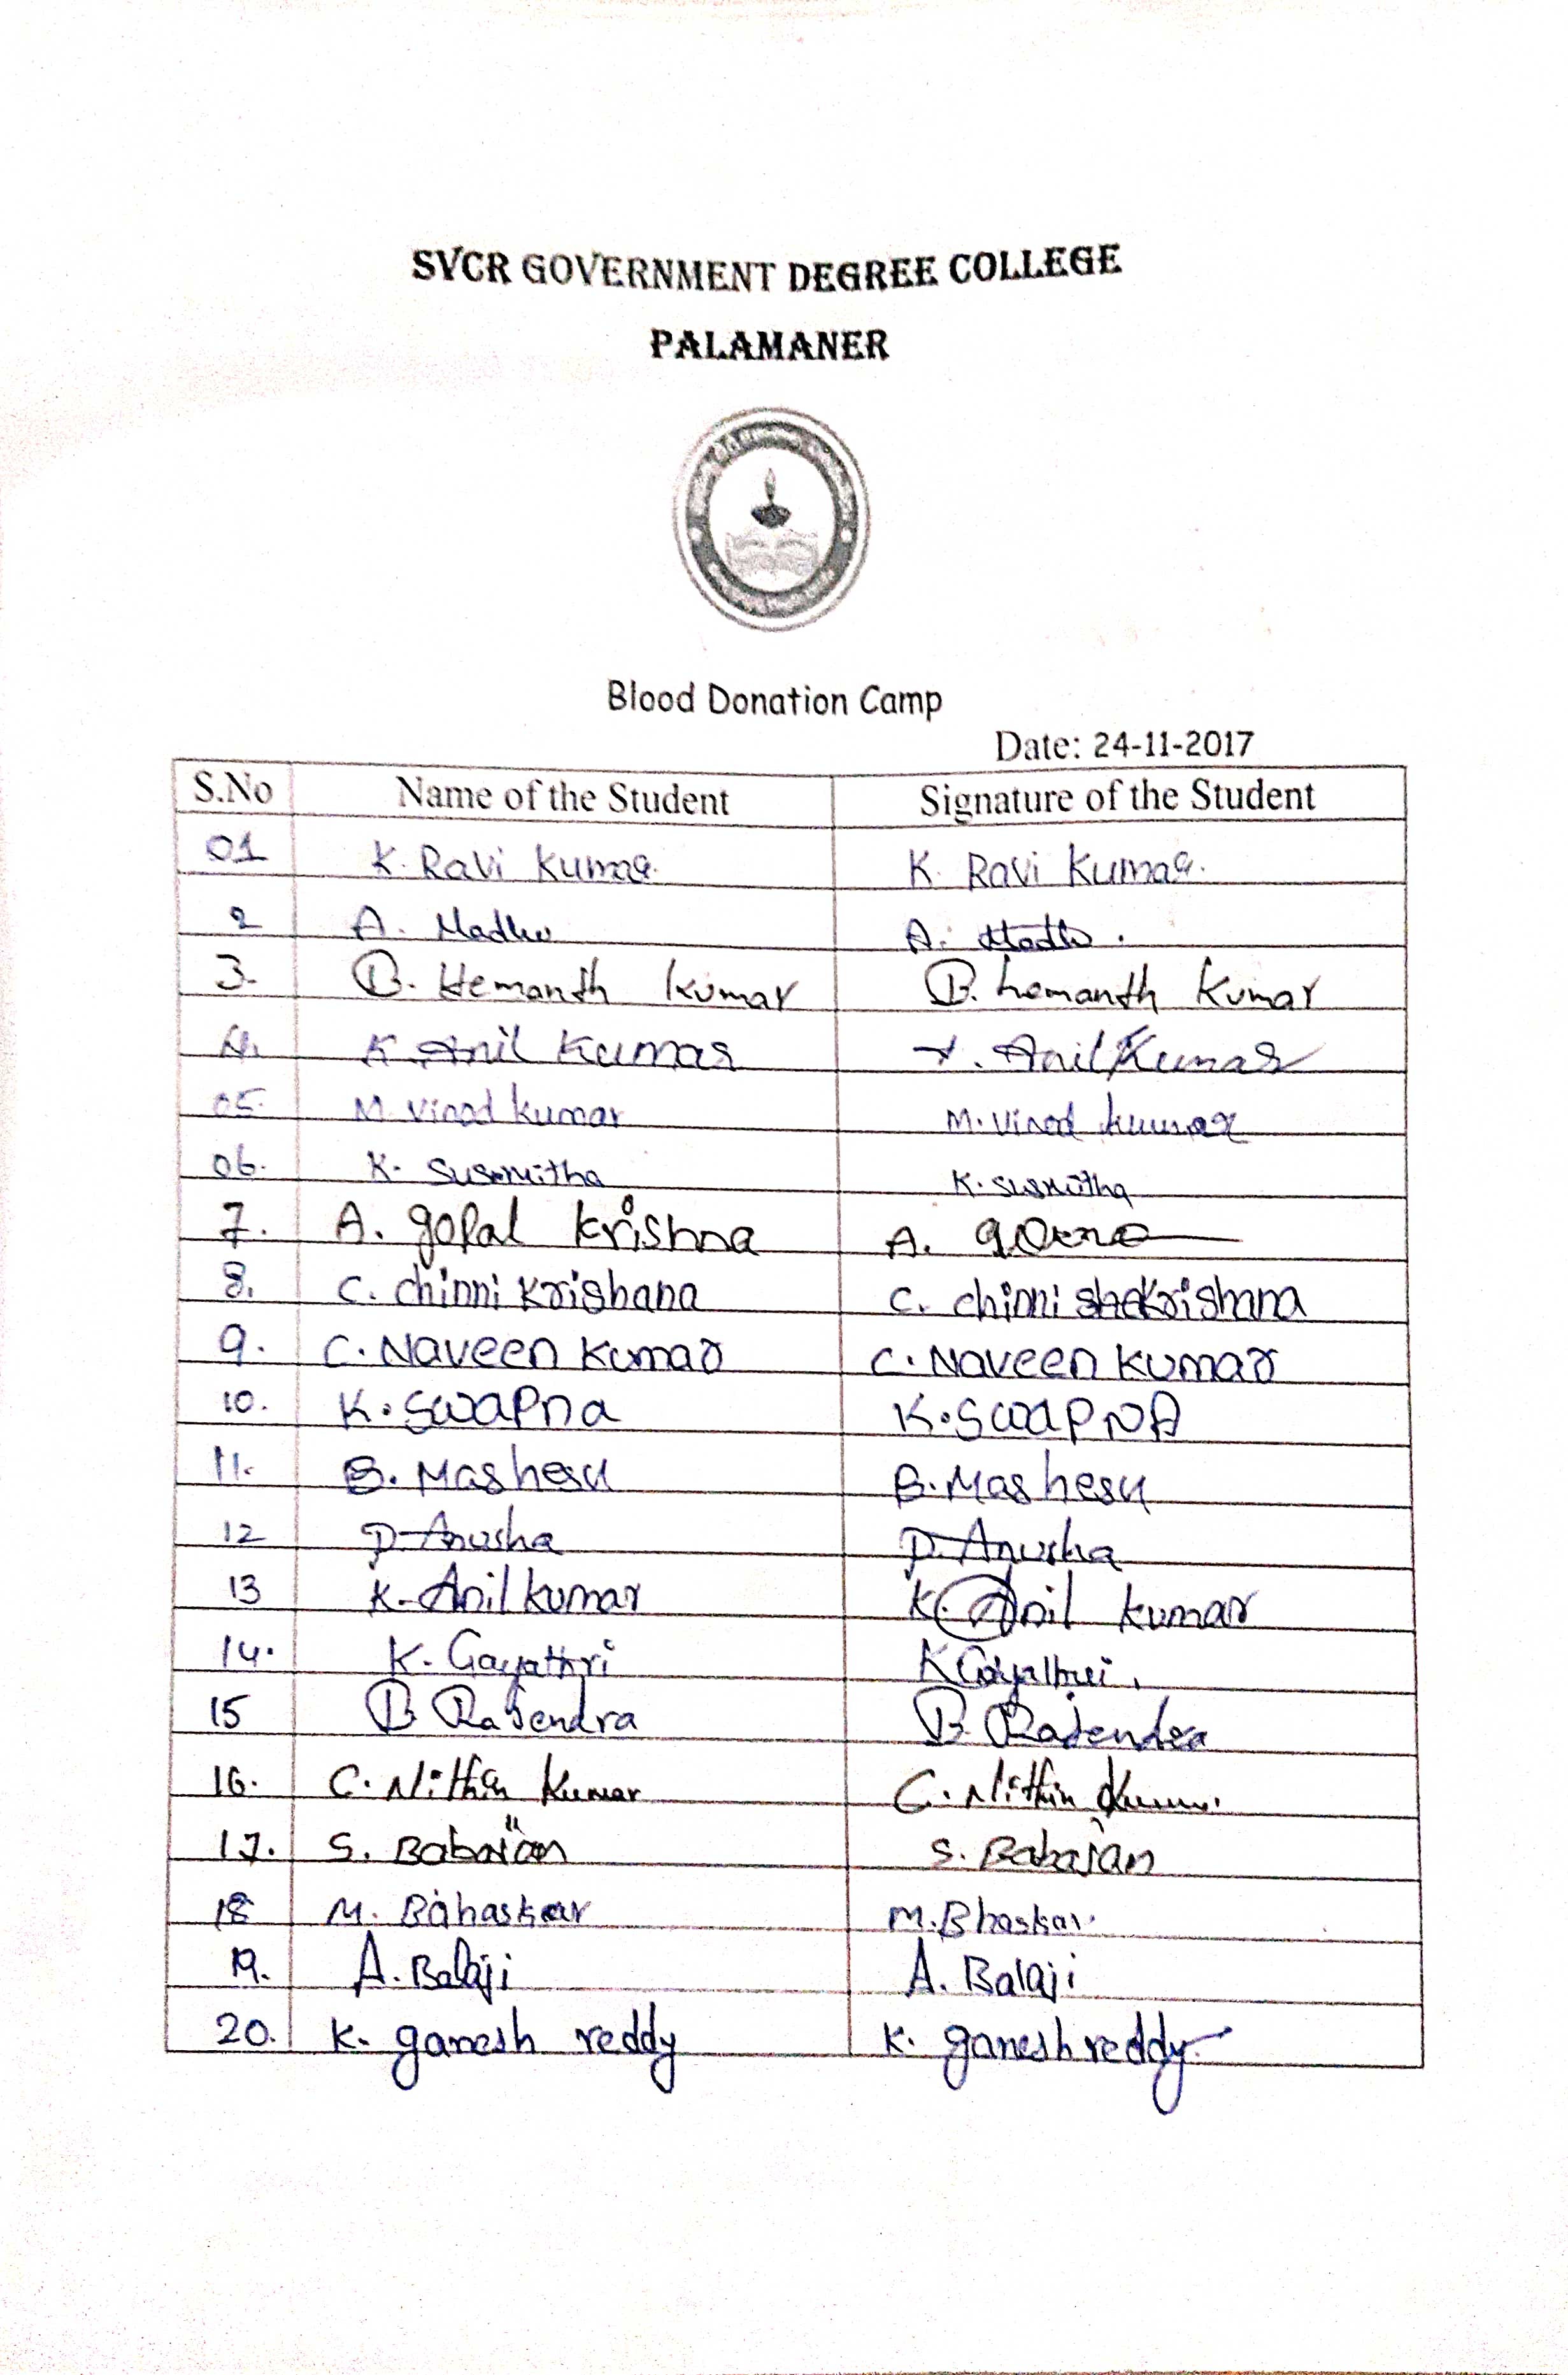 SVCR GOVERNMENT DEGREE COLLEGE
PALAMANER
Blood Donation Camp
Date: 24-11-2017
S.No Name of the Student Signature of the Student
01 K. Ravi Kumar. K. Ravi Kumar.
2 A. Madhu A. Madhu.
3. B. Hemanth Kumar B. hemanth Kumar
4. K Anil Kumar K. Anil Kumar
05. M. Vinod kumar M. Vinod kumar
06. K. Sussmitha K. Susmitha
7. A. gopal Krishna A.
8. C. chinni Krishana C. chinni Krishana
9. C. Naveen Kumar C. Naveen Kumar
10. K. Swapna K. SwapNA
11. B. Mashesu B. Mashesu
12 D. Anusha D. Anusha
13 K. Anil kumar K. Anil kumar
14. K. Gayathri K Gayathri.
15 B. Rajendra B. Rajendra
16. C. Nithin Kumar C. Nithin Kumar.
17. S. Babajan S. Babajan
18 M. Bahaskar M. Bhaskar.
19. A. Balaji A. Balaji
20. K. ganesh reddy K. ganesh reddy